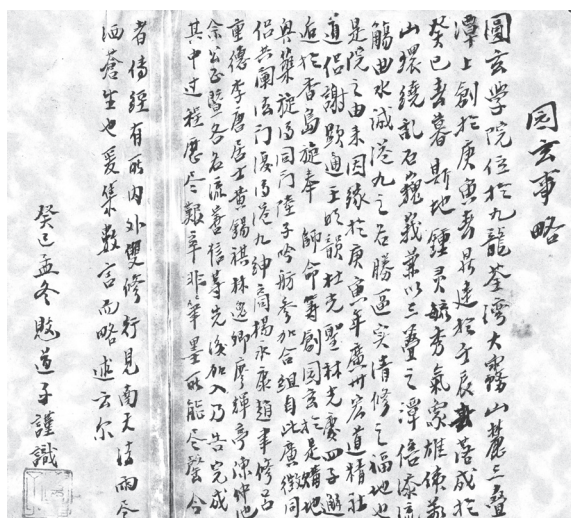 园玄事略
圓玄学院位於九龍荃灣大霧山麓三疊
潭上創於庚寅春昇建於壬辰落成於
癸巳春暮斯地鍾灵毓秀氣象雄伟萬
山環繞乱石巍峩兼以三疊之潭倍添流
觴曲水诚港九之名勝適实清修之福地也
是院之由来因緣於庚寅年廣州宏道精社
道侣謝顯通王明韻杜光聖林光慶四子避
迹於香島旋奉師命籌創园玄於是購地
興築旋得同门陸子吟舫參加合組自此廣徵同
侣共阐法门復得港九紳商楊永康趙聿修吕
重德李唐居士黄錫祺林逸卿廖輝亭陳仲池
余公正暨各名流善信等先後加入乃告完成
其中过程歷尽艱辛非筆墨所能尽罄今
者傳經有所内外雙修行見南天法雨尽
洒蒼生也爰集数言而略述云尔
癸巳孟冬道子謹識